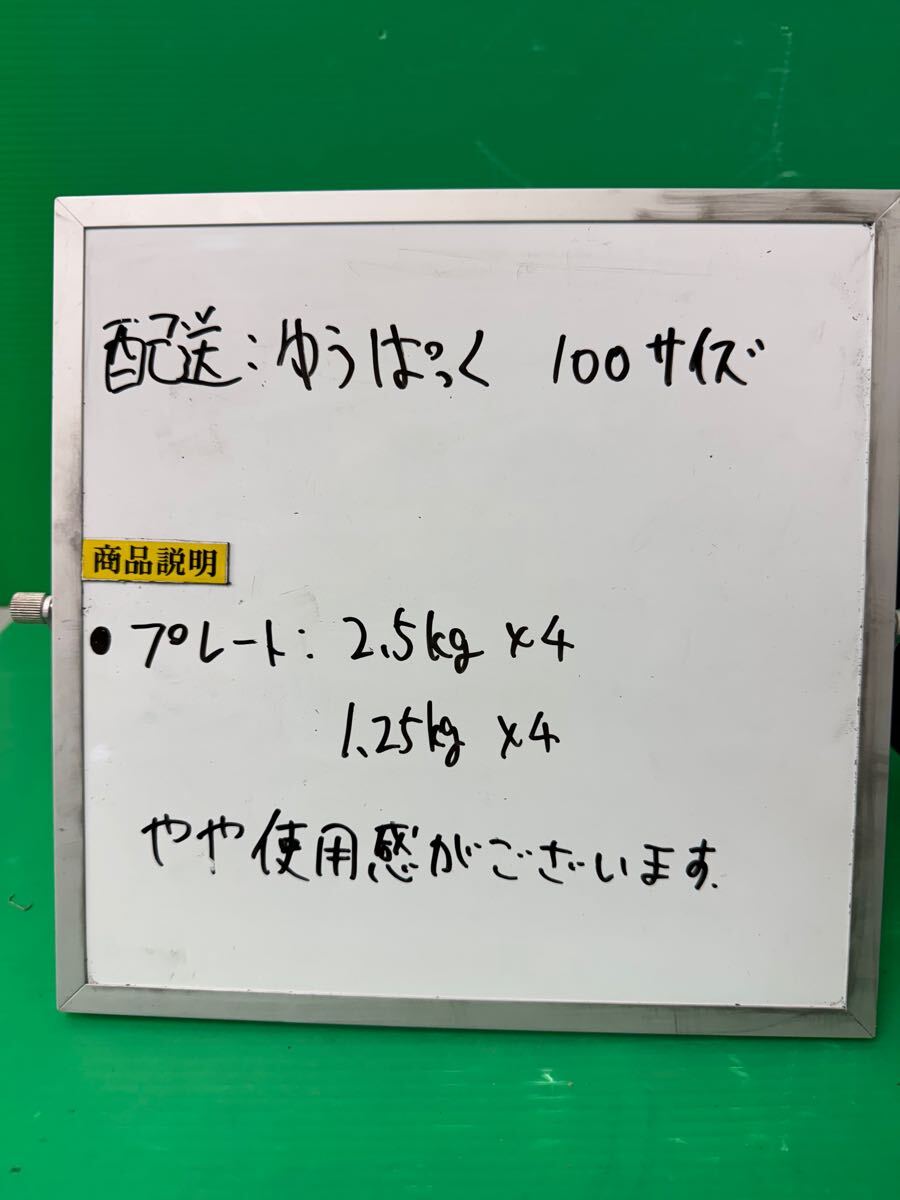 配送:ゆうぱっく 100サイズ
商品説明
● プレート: 2.5kg ×4
1.25kg ×4
やや使用感がございます.